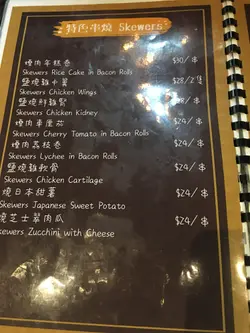 特肉串燒 Skewers
煙肉年糕卷 $30/串
Skewers Rice Cake in Bacon Rolls
鹽燒雞小翼 $28/2隻
Skewers Chicken Wings
鹽燒鮮雞腎 $28/串
Skewers Chicken Kidney
煙肉車厘茄 $24/串
Skewers Cherry Tomato in Bacon Rolls
煙肉荔枝卷 $24/串
Skewers Lychee in Bacon Rolls
鹽燒雞軟骨 $24/串
Skewers Chicken Cartilage
燒日本甜薯 $24/串
Skewers Japanese Sweet Potato
燒芝士翠肉瓜 $24/串
Skewers Zucchini with Cheese